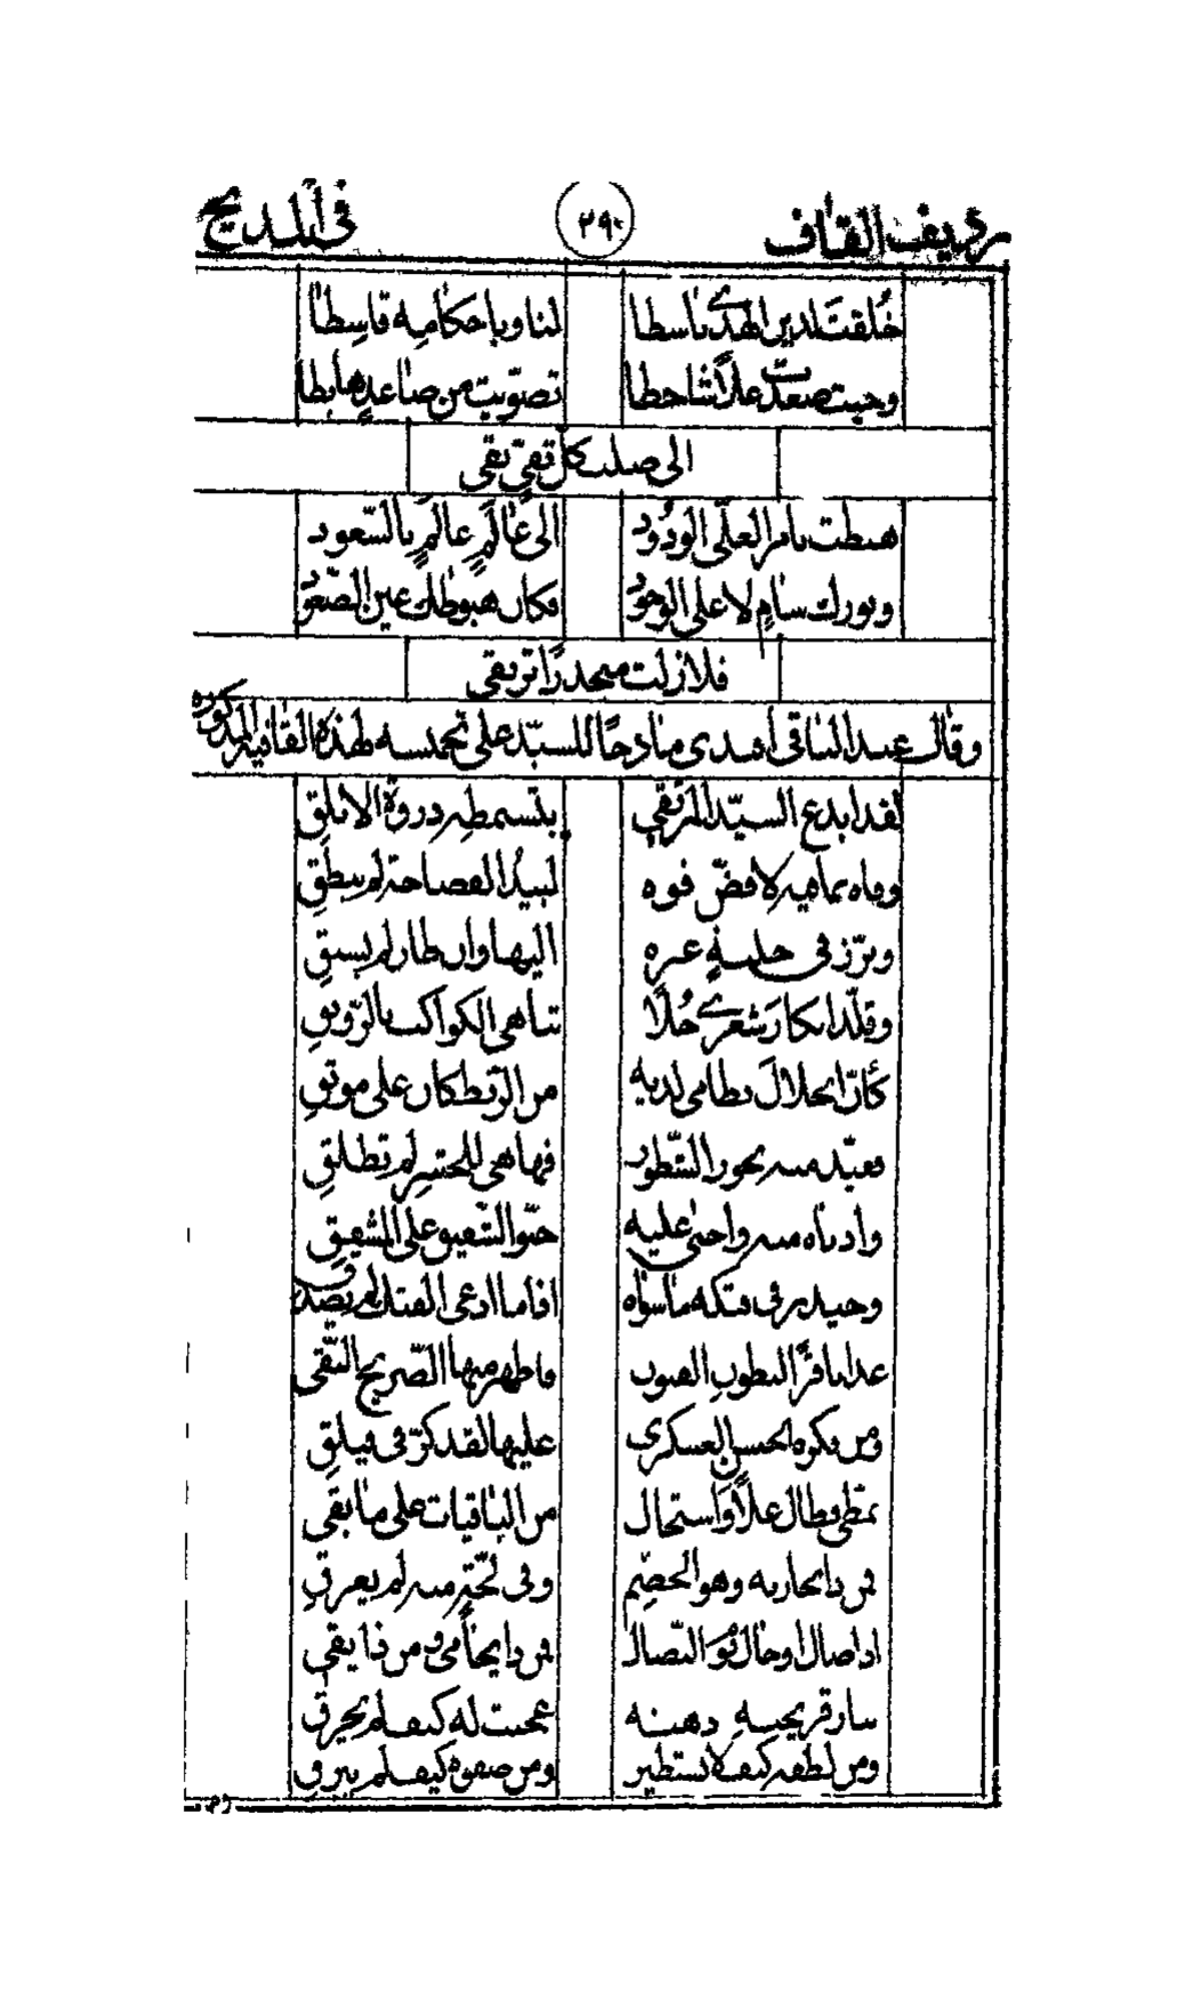 رديف القاف ٢٩٠ في المديح
خُلقتَ لدين الهدى باسطا لنا وباحكامِه قاسِطا
وحيث صعدت علاً شاحطا تصوّبت من صاعدٍ هابطا
الى صلب كل تقىّ نقى
هبطت بامر العلّى الوَدُود الى عَالَمٍ عالمٍ بالسّعود
وبورك سامٍ لا على الوجود فكان هبوطك عين الصّعود
فلا زلت منحدرًا ترتقى
وقال عبد الباقى افندى مادحًا للسيّد على تخميسه لهذه القافية المذكوره
لقد ابدع السيّد المرتقي بتسميطه ذروة الابلق
وفاه بما فيه لا فضّ فوه لبيدُ الفصاحة لم ينطقِ
وبرّز فى حلبةٍ غيره اليها وان طار لم يسبقِ
وقلّد ابكارَ شعرى حُلاً تباهى الكواكب بالرّونقِ
كأنّ انحلالَ نظامى لديه من الرّبط كان على موثقِ
فقيّد منه بحور السّطور فها هى للحشر لم تطلقِ
وادناه منه واحنى عليه حنوّ الشّفيق على المشفقِ
وحيد فى فتكه ما سواه اذا ما ادعى الفتك لم يصدقِ
غدا باقرًا لبطون الفنون فاظهر منها الصّريح النّقى
ومن فكره الحسن العسكرى عليها لقد كرّ فى فيلقِ
تمطّى وطال علاً واستحال من الباقيات على ما بقى
فمن ذا يجاريه وهو الخضمّ وفى لجّةٍ منه لم يغرقِ
اذا صال او جال يوَم النّصال فمن ذا يحامى ومن ذا يقى
بنار قريحتهِ ذهنه عجبت له كيف لم يحرقِ
ومن لطفه كيف لا يستطير ومن صفوه كيف لم يبرقِ